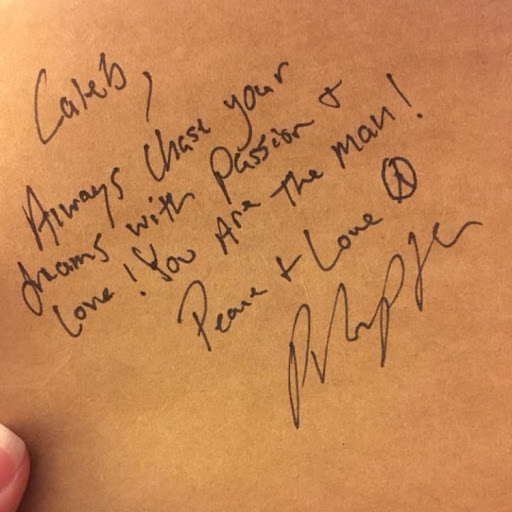 Caleb,
Always chase your
dreams with passion +
love! You Are The Man!
Peace + Love